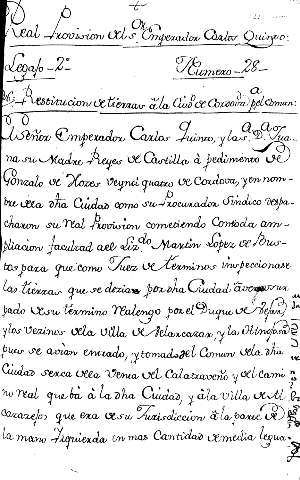 Real Provision del Sor. Emperador Carlos Quinto.
Legajo - 2º
Numero - 28 -
Restitucion de tierras â la Ciud. de Cordova pa. el Comun.
El Señor Emperador Carlos Quinto, y la Sa. Da. Jua-
na su Madre Reyes de Castilla â pedimento de
Gonzalo de Hozes veynti quatro de Cordova, y en nom-
bre de la dha Ciudad como su Procurador Sindico despa-
charon su real Provision cometiendo con toda am-
pliacion facultad ael Lizdo. Martin Lopez de Bus-
tos para que como Juez de terminos inspeccionase
las tierras que se dezia por dha Ciudad
pado de su termino realengo por el Duque de Bejar
y los vezinos de la villa de Belarcazar, y la Hinojosa
pues se avian entrado, y tomado del Comun de la dha
Ciudad serca de la Venta del Calatraveño, y del cami
no real que bâ â la dha Ciudad, y â la Villa de Al
caracejos que era de su Jurisdiccion â la parte de
la mano Yzquierda en mas Cantidad de media legua